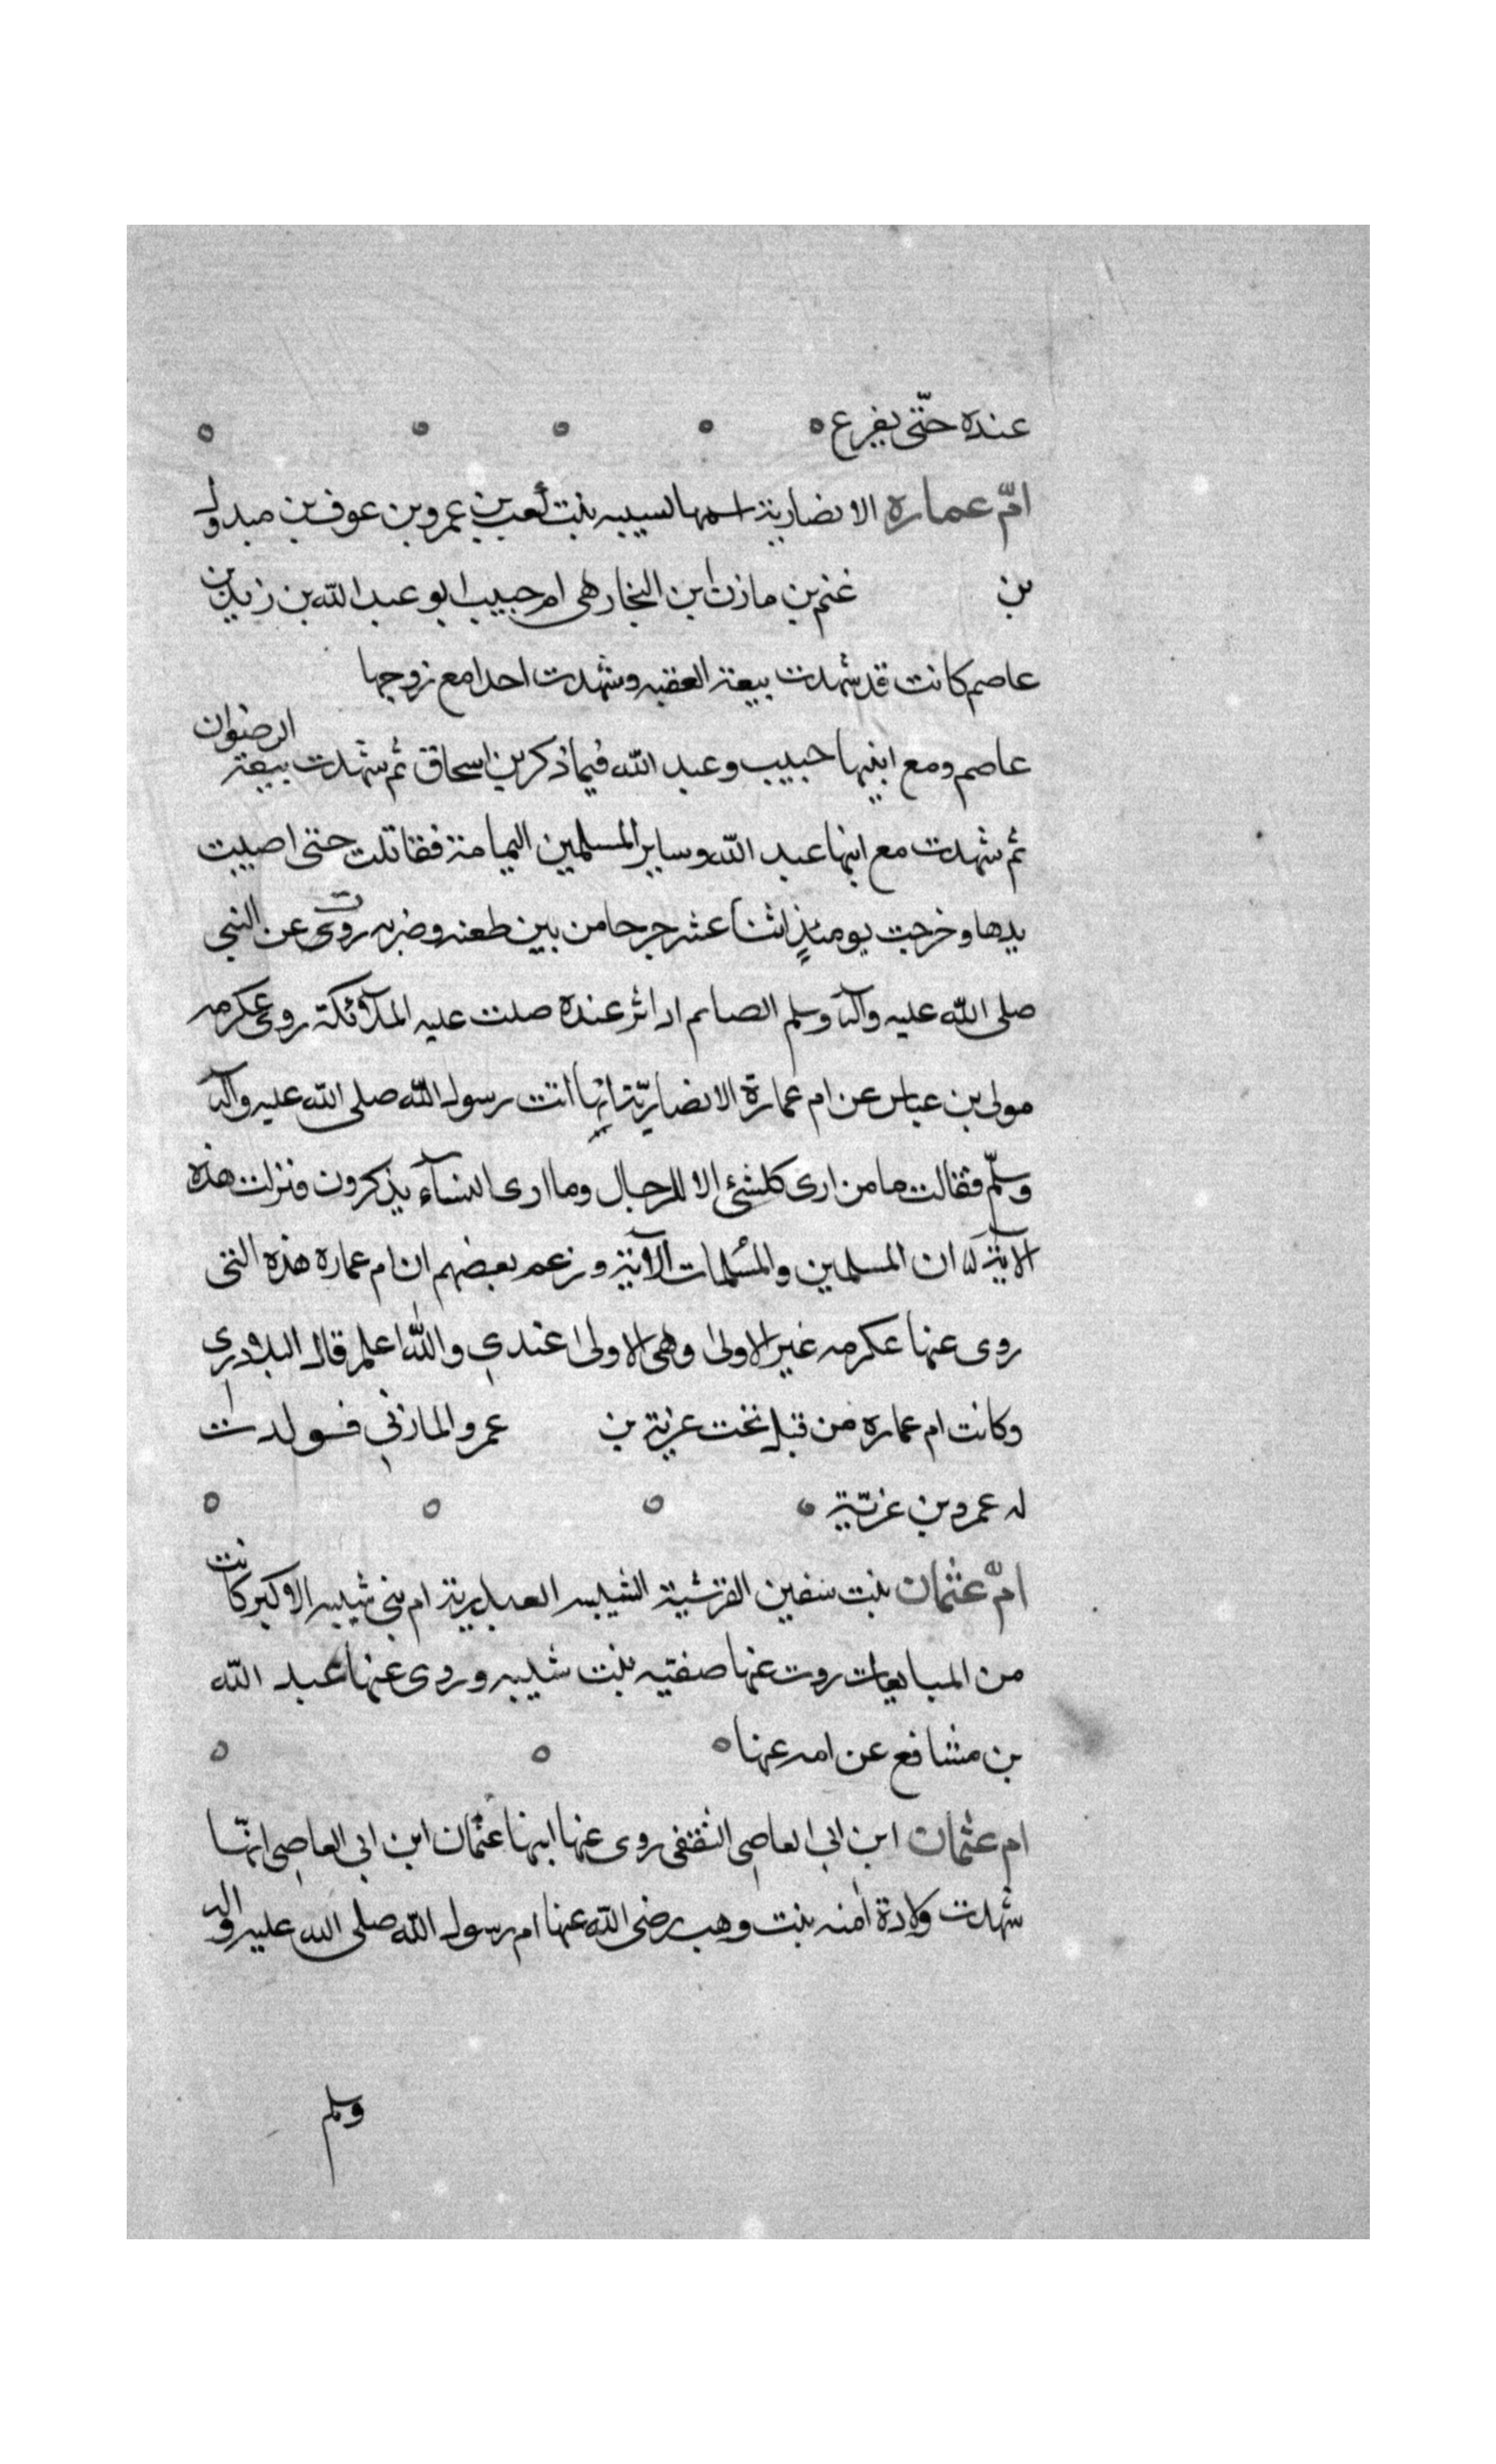 عنده حتّى يفرع
امّ عماره الانصارية اسمها لسيبه بنت كعب بن عمرو بن عوف بن مبدول
بن غنم بن مازن ابن النجار هى ام حبيب ابو عبد الله بن زيد بن
عاصم كانت قد شهدت بيعة العقبه وشهدت احدا مع زوجها
عاصم ومع ابنيها حبيب وعبد الله فيما ذكر بن اسحاق ثم شهدت بيعة الرضوان
ثم شهدت مع ابنها عبد الله وساير المسلمين اليمامة فقاتلت حتى اصيبت
يدها وخرجت يومئذٍ اثنا عشر جرحا من بين طعنه وضربه روت عن النبى
صلى الله عليه وآله وسلم الصايم اذا اثر عنده صلت عليه الملآئكة روى عكرمه
مولى بن عباس عن ام عمارة الانصاريّة انها اتت رسول الله صلى الله عليه وآله
وسلّم فقالت ما من ارى كلشئ الا للرجال وما ارى النسآء يذكرون فنزلت هذه
الآية ان المسلمين والمسلمات الآية وزعم بعضهم ان ام عماره هذه التى
روى عنها عكرمه غير الاولى وهى الاولى عندي والله اعلم قال البلاذري
وكانت ام عماره من قبل تحت عزية بن عمرو المازني فولدت
له عمرو بن عزيّة
امّ عثمان بنت سفين القرشية الشيبيه العبدرية ام بنى شيبه الاكبر كانت
من المبايعات روت عنها صفيه بنت شيبه وروى عنها عبد الله
بن مشافع عن امه عنها
ام عثمان ابن ابي العاصى الثقفى روى عنها ابنها عثمان ابن ابي العاصى انّها
شهدت ولادة امنه بنت وهب رضى الله عنها ام رسول الله صلى الله عليه واله
وسلم